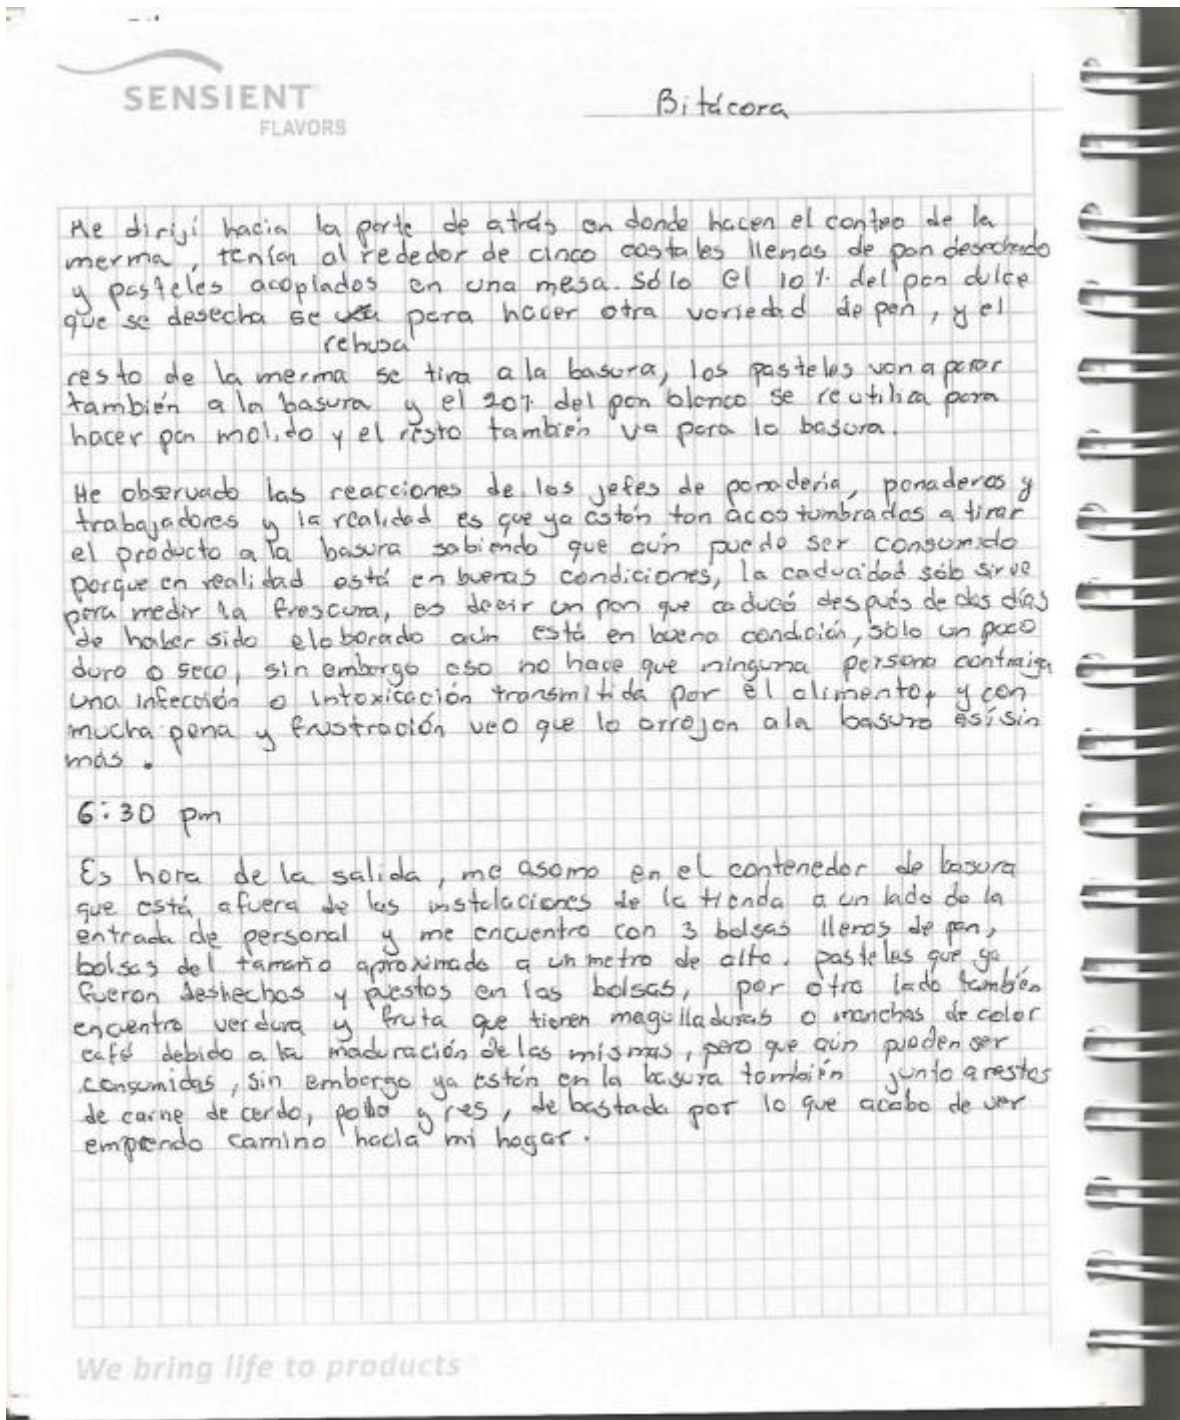 SENSIENT
FLAVORS
Bitácora
Me dirijí hacia la parte de atrás en donde hacen el conteo de la
merma, tenían al rededor de cinco costales llenos de pan desechado
y pasteles acoplados en una mesa. sólo el 10% del pan dulce
que se desecha se para hacer otra variedad de pan, y el
rehusa
resto de la merma se tira a la basura, los pasteles van a parar
también a la basura y el 20% del pan blanco se reutiliza para
hacer pan molido y el resto también va para la basura.
He observado las reacciones de los jefes de panadería, panaderos y
trabajadores y la realidad es que ya están tan acostumbrados a tirar
el producto a la basura sabiendo que aún puede ser consumido
porque en realidad está en buenas condiciones, la caducidad sólo sirve
para medir la frescura, es decir un pan que caducó después de dos días
de haber sido elaborado aún está en buena condición, sólo un poco
duro o seco, sin embargo eso no hace que ninguna persona contraiga
una infección o intoxicación transmitida por el alimento, y con
mucha pena y frustración veo que lo arrojan a la basura así sin
más.
6:30 pm
Es hora de la salida, me asomo en el contenedor de basura
que está afuera de las instalaciones de la tienda a un lado de la
entrada de personal y me encuentro con 3 bolsas llenas de pan,
bolsas del tamaño aproximado a un metro de alto. pasteles que ya
fueron deshechos y puestos en las bolsas, por otro lado también
encuentro verdura y fruta que tienen magulladuras o manchas de color
café debido a la maduración de las mismas, pero que aún pueden ser
consumidas, sin embargo ya están en la basura también junto a restos
de carne de cerdo, pollo y res, debastada por lo que acabo de ver
emprendo camino hacia mi hogar.
We bring life to products